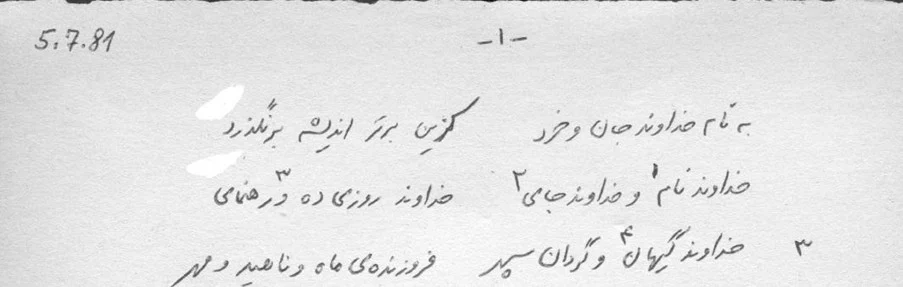 5.7.81
-۱-
به نام خداوند جان و خرد کزین برتر اندیشه برنگذرد
خداوند نام۱ و خداوند جای۲ خداوند روزی ده و۳ رهنمای
۳ خداوند گیهان۴ و گردان سپهر فروزنده‌ی ماه و ناهید و مهر